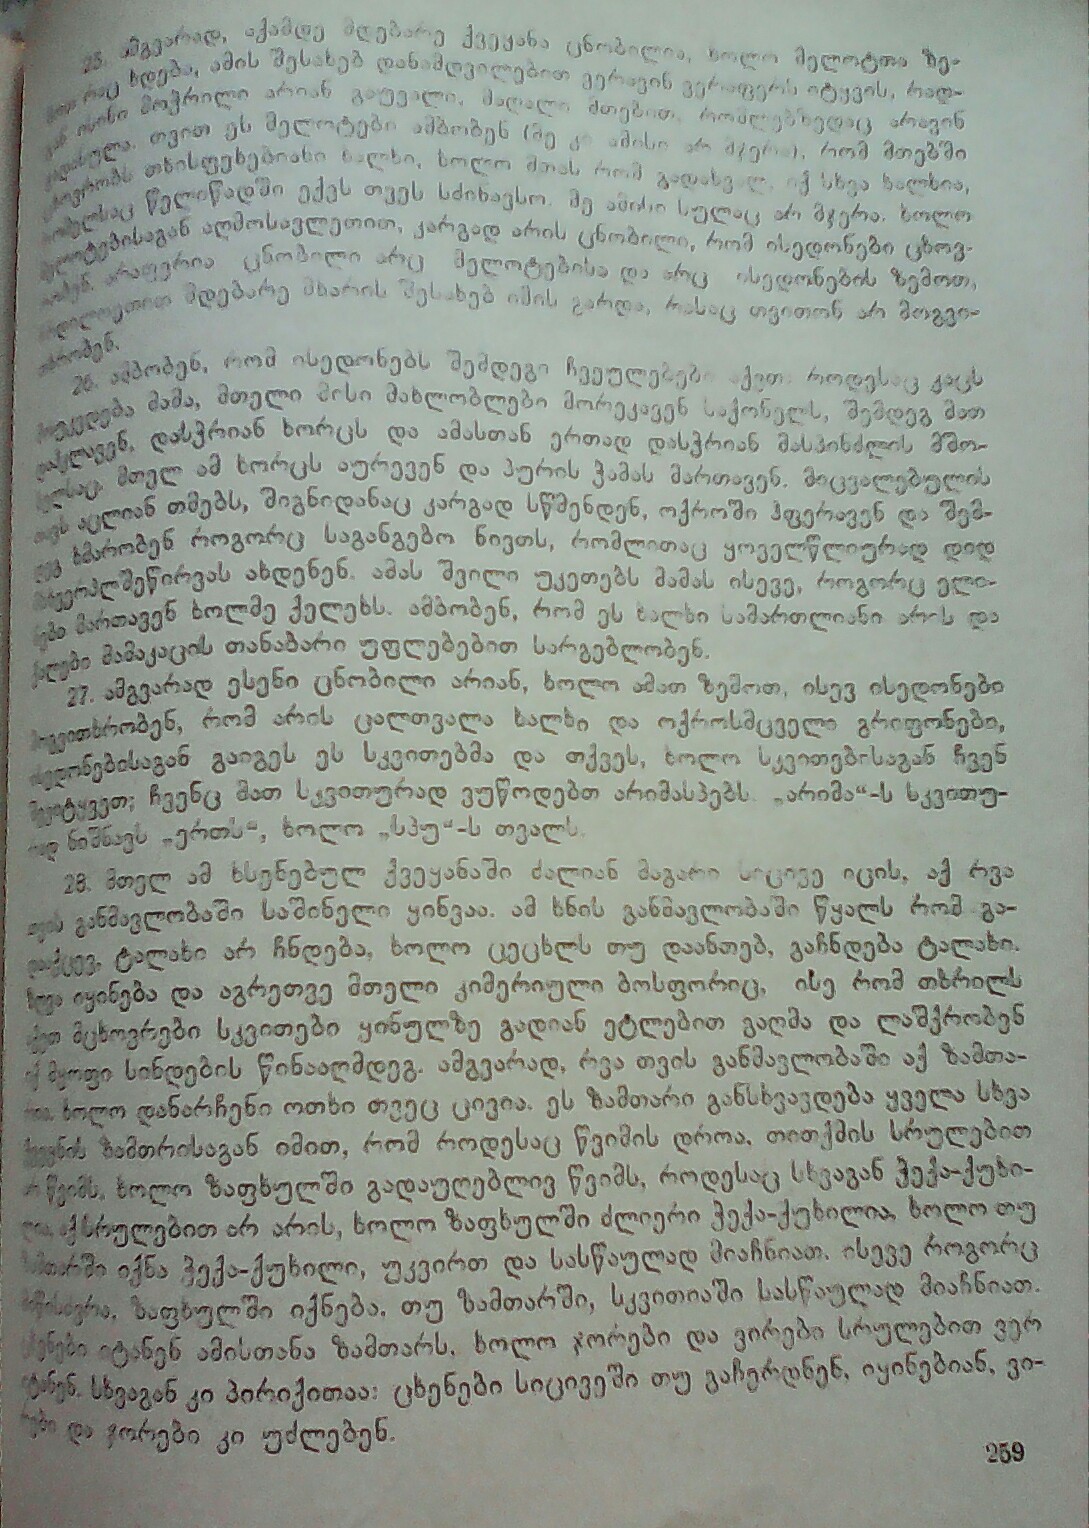 25. ამგვარად, აქამდე მდებარე ქვეყანა ცნობილია, ხოლო მელოტთა ზე-
რაც ხდება, ამის შესახებ დანამდვილებით ვერავინ ვერაფერს იტყვის, რად-
გან ისინი მოჭრილი არიან გაუვალი, მაღალი მთებით, რომლებზედაც არავინ
გადასულა. თვით ეს მელოტები ამბობენ (მე კი ამისი არ მჯერა), რომ მთებში
ცხოვრობს თხისფეხებიანი ხალხი, ხოლო მთას რომ გადახვალ, იქ სხვა ხალხია,
რომელსაც წელიწადში ექვს თვეს სძინავსო. მე ამისი სულაც არ მჯერა. ხოლო
მელოტებისაგან აღმოსავლეთით, კარგად არის ცნობილი, რომ ისედონები ცხოვ-
რობენ. არაფერია ცნობილი არც მელოტებისა და არც ისედონების ზემოთ,
ჩრდილოეთით მდებარე მხარის შესახებ იმის გარდა, რასაც თვითონ არ მოგვი-
თხრობენ.
26. ამბობენ, რომ ისედონებს შემდეგი ჩვეულებები აქვთ. როდესაც კაცს
მოუკვდება მამა, მთელი მისი მახლობლები მორეკავენ საქონელს, შემდეგ მათ
დაკლავენ, დასჭრიან ხორცს და ამასთან ერთად დასჭრიან მასპინძლის მშო-
ბელსაც. მთელ ამ ხორცს აურევენ და პურის ჭამას მართავენ. მიცვალებულის
თავს აცლიან თმებს, შიგნიდანაც კარგად სწმენდენ, ოქროში ჰფერავენ და შემ-
დეგ ხმარობენ როგორც საგანგებო ნივთს, რომლითაც ყოველწლიურად დიდ
მსხვერპლშეწირვას ახდენენ. ამას შვილი უკეთებს მამას ისევე, როგორც ელი-
ნები მართავენ ხოლმე ქელეხს. ამბობენ, რომ ეს ხალხი სამართლიანი არის და
ქალები მამაკაცის თანაბარი უფლებებით სარგებლობენ.
27. ამგვარად ესენი ცნობილი არიან, ხოლო ამათ ზემოთ, ისევ ისედონები
მოგვითხრობენ, რომ არის ცალთვალა ხალხი და ოქროსმცველი გრიფონები,
ისედონებისაგან გაიგეს ეს სკვითებმა და თქვეს, ხოლო სკვითებისაგან ჩვენ
შევიტყვეთ; ჩვენც მათ სკვითურად ვუწოდებთ არიმასპებს. „არიმა“-ს სკვითუ-
რად ნიშნავს „ერთს“, ხოლო „სპუ“-ს თვალს.
28. მთელ ამ ხსენებულ ქვეყანაში ძალიან მაგარი სიცივე იცის, აქ რვა
თვის განმავლობაში საშინელი ყინვაა. ამ ხნის განმავლობაში წყალს რომ გა-
დააქცევ, ტალახი არ ჩნდება, ხოლო ცეცხლს თუ დაანთებ, გაჩნდება ტალახი.
ზღვა იყინება და აგრეთვე მთელი კიმერიული ბოსფორიც, ისე რომ თხრილს
იქით მცხოვრები სკვითები ყინულზე გადიან ეტლებით გაღმა და ლაშქრობენ
იქ მყოფი სინდების წინააღმდეგ. ამგვარად, რვა თვის განმავლობაში აქ ზამთა-
რია, ხოლო დანარჩენი ოთხი თვეც ცივია. ეს ზამთარი განსხვავდება ყველა სხვა
ქვეყნის ზამთრისაგან იმით, რომ როდესაც წვიმის დროა, თითქმის სრულებით
არ წვიმს, ხოლო ზაფხულში გადაუღებლივ წვიმს, როდესაც სხვაგან ჭექა-ქუხი-
ლია, აქ სრულებით არ არის, ხოლო ზაფხულში ძლიერი ჭექა-ქუხილია, ხოლო თუ
ზამთარში იქნა ჭექა-ქუხილი, უკვირთ და სასწაულად მიაჩნიათ. ისევე როგორც
მიწისძვრა, ზაფხულში იქნება, თუ ზამთარში, სკვითიაში სასწაულად მიაჩნიათ.
ცხენები იტანენ ამისთანა ზამთარს, ხოლო ჯორები და ვირები სრულებით ვერ
იტანენ. სხვაგან კი პირიქითაა: ცხენები სიცივეში თუ გაჩერდნენ, იყინებიან, ვი-
რები და ჯორები კი უძლებენ.
259